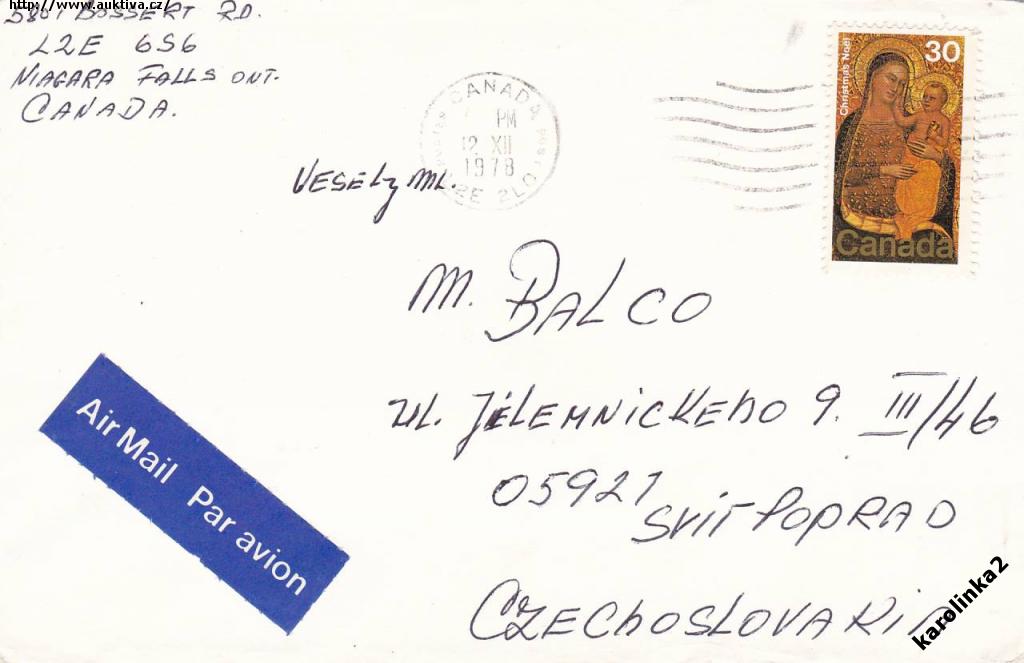 http://www.auktiva.cz/
5801 BOSSERT RD.
L2E 6S6
NIAGARA FALLS ONT.
CANADA.
Christmas Noël
30
Canada
CANADA
PM
12 XII
1978
L2E 2L0
VESELY ML.
M. BALCO
UL. JILEMNICKEHO 9. III/46
05921
SVIT POPRAD
CZECHOSLOVAKIA
Air Mail Par avion
karolinka2